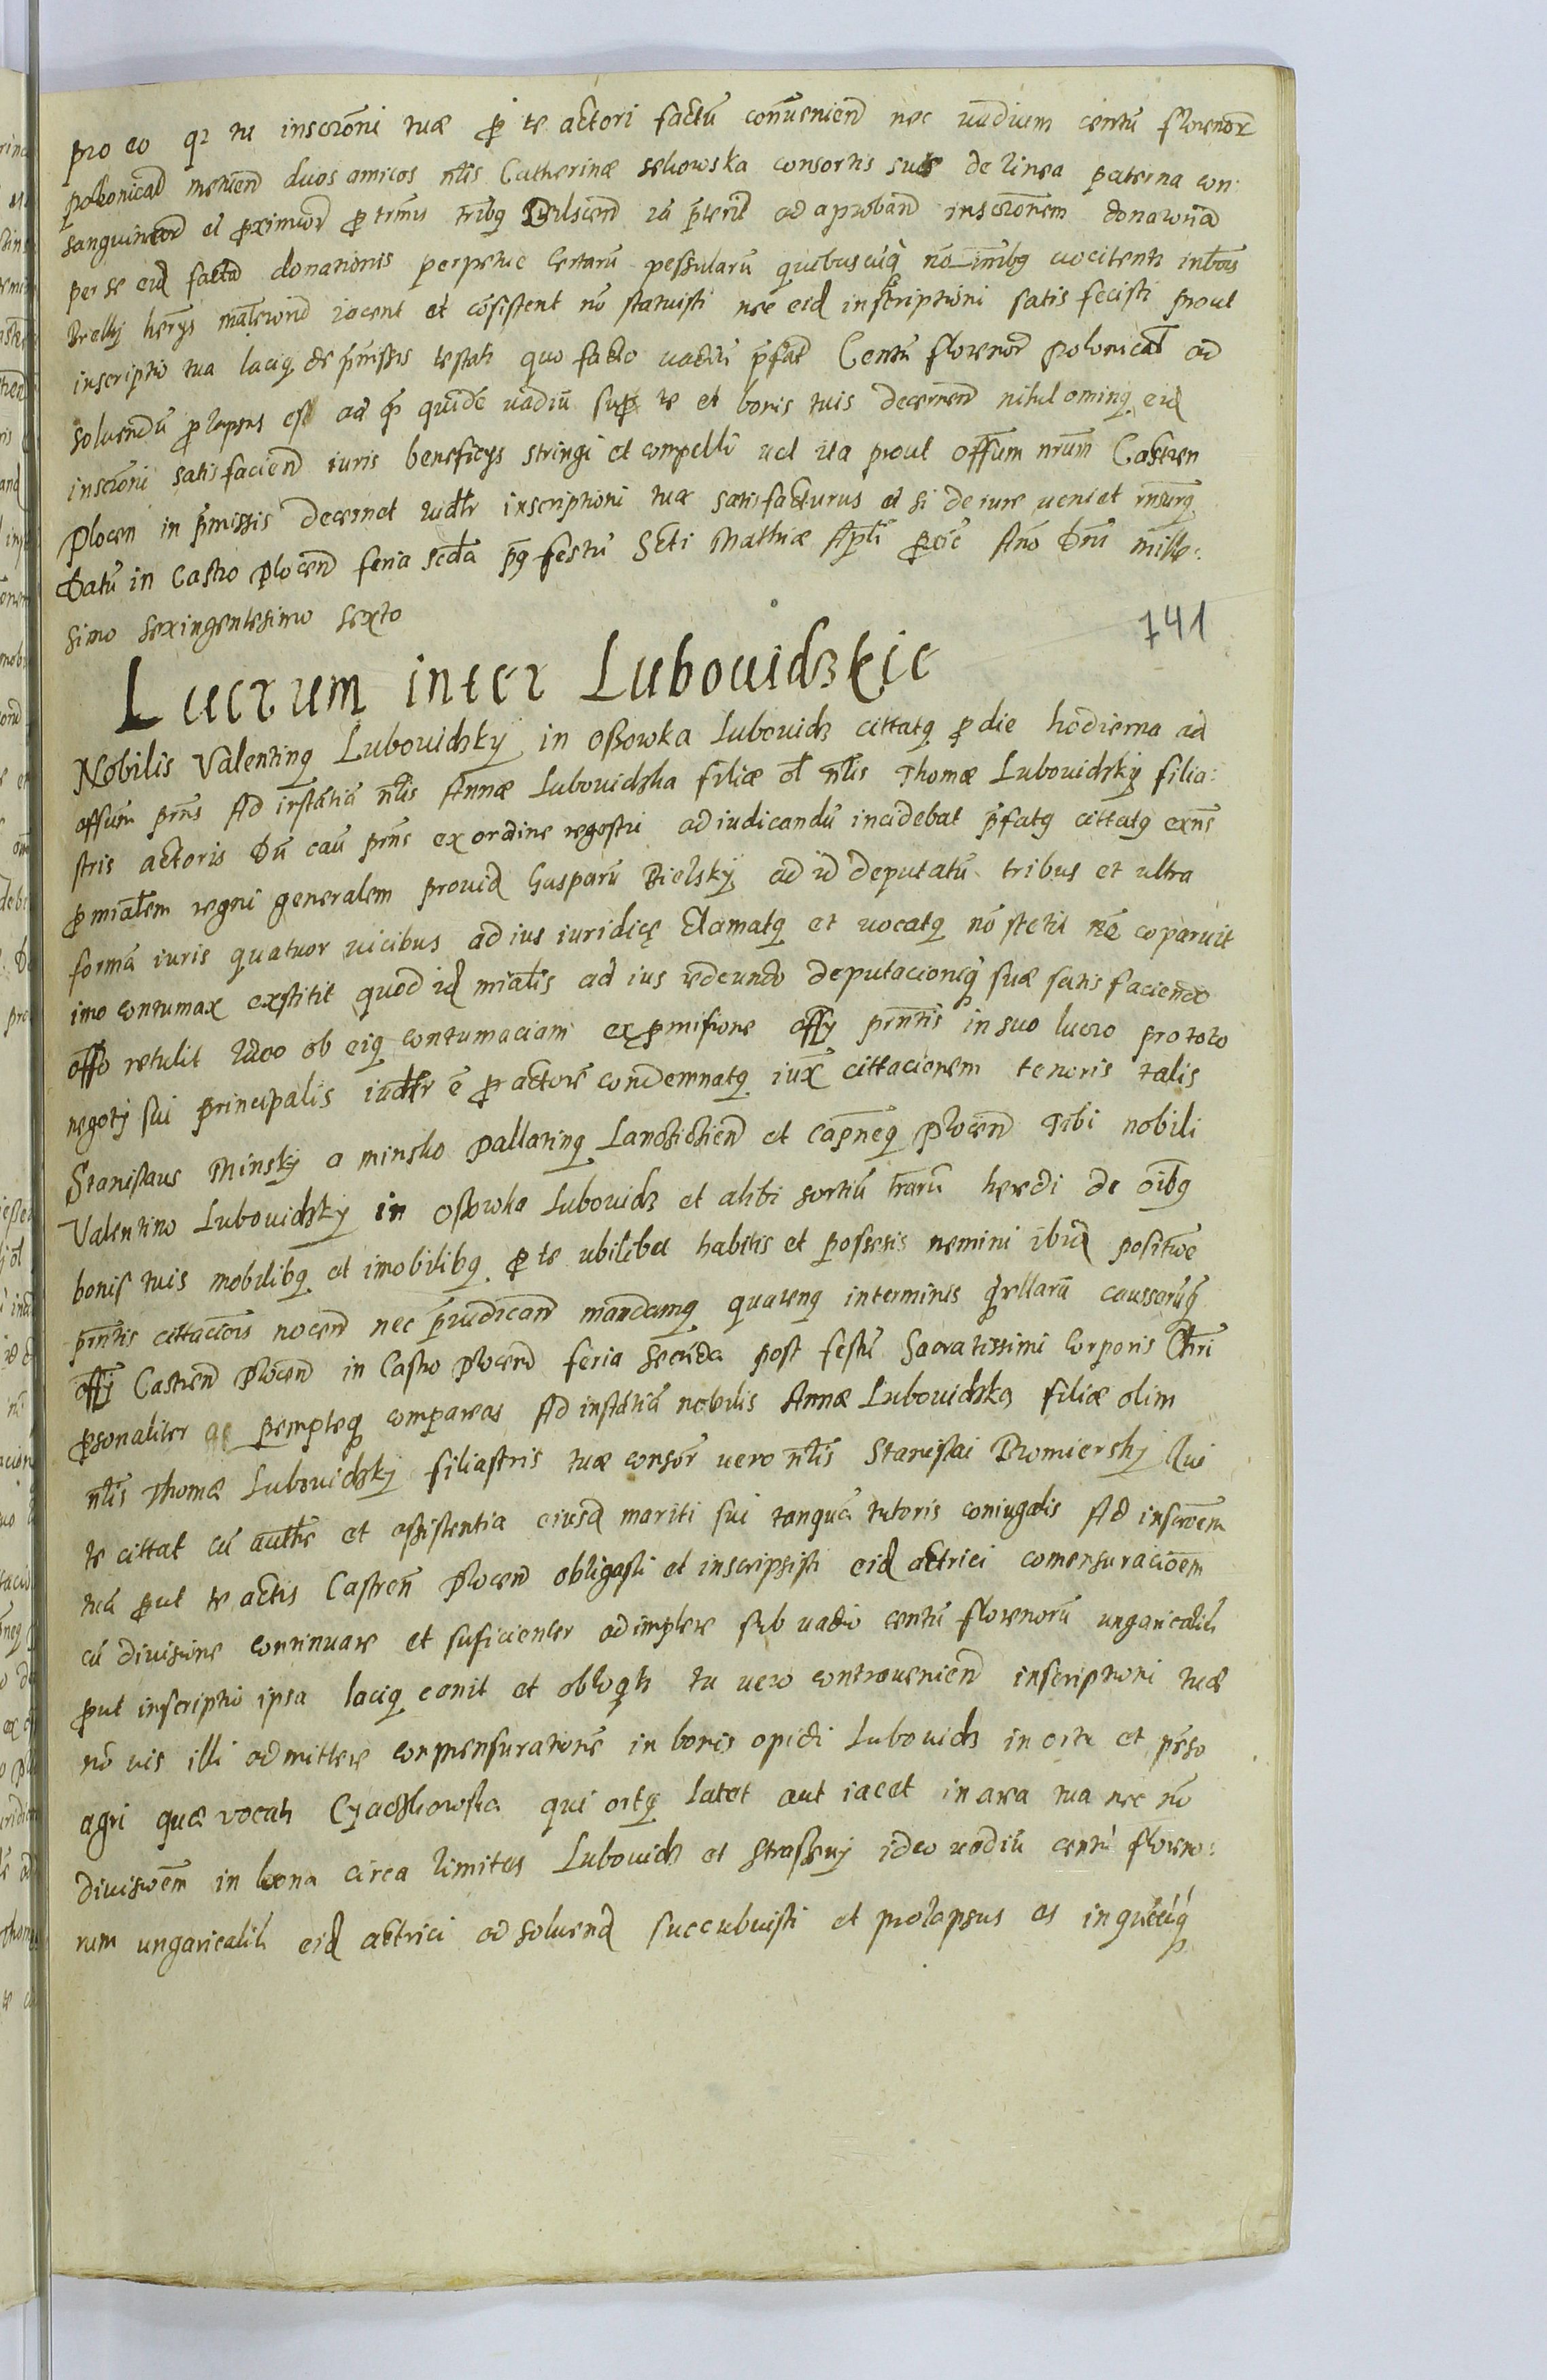 pro eo q2 tu inscrōni tuæ p te actori factū conuenienđ nec vadium centū florenor
polonicaɫ metuenđ duos amicos nɫis Catherinæ sekowska consortis suæ de linea paterna con:
sanguineorđ et proximiorđ p trmis tribq Bilscenđ iā pterit ad aprobanđ inscrōnem donationē
per se eid factā donationis perpetuæ certarū pessularū quibuscūq nō inībq vocitentr in bōis
hærijs materionđ iacent et cōsistent nō statuisti neē eid inscriptioni satis fecisti prout
inscriptio tua laciq de pmissis testatr quo facto vadiū pfaɫ Centū florenor polonicaɫ ad
soluendū plapsus es ad q quidē vadiū sup te et bonis tuis decernenđ nihil ominq eid
inscrōni satisfacienđ iuris beneficys stringi et compelli vel ita prout offum nrum Castren
Plocen in pmissis decernet vidɫr inscriptioni tuæ satisfacturus et si de iure veniat rnsurq
Datū in Castro Plocenđ feria scđa pq festū Scti Mathiæ Apɫi pxiē Año Dñi mille:
simo sexingentesimo sexto
741
Lucrum inter Lubouidzkie
Nobilis Valentinq Lubouidzky in Ossowka Lubouidz cittatq p die hodierna ad
offum prns Ad instātiā nɫis Annæ Lubouidzka filiæ oɫ nɫis Thomæ Lubouidzky filia:
stris actoris Dū caū prns ex ordine regestri ad iudicandū incidebat pfatq cittatq exns
p miaɫem regni generalem prouid Gasparū Bielsky ad id deputatū tribus et ultra
formā iuris quatuor vicibus ad ius iuridicę clamatq et vocatq nō stetit nē coparuit
imo contumax exstitit quod id miaɫis ad ius redeundo deputacioniq suæ satis faciendo
offo retulit Ideo ob eiq contumaciam ex pmisione offy prntis in suo lucro pro toto
negoty sui principalis iudɫr ē p actore condemnatq iux cittacionem tenoris talis
Stanislaus Minsky a minsko Pallatinq Lanchichienđ et Capneq Plocenđ Tibi nobili
Valentino Lubouidzky in Ossowka Lubouidz et alibi sortiū trarū heredi de oībq
bonis tuis mobilibq et imobilibq p te ubilibet habitis et possesis nemini ibid positione
prntis cittacōis nocenđ nec piudicanđ mandamq quatenq in terminis qrellarū caussarūq
offy Castrenđ Plocenđ in Castro Plocenđ feria secūda post festū Sacratissimi Corporis Chri
psonaliter ac pempteq compareas Ad instātiā nobilis Annæ Lubouidzka filiæ olim
nɫis Thomæ Lubouidzky filiastris tuæ consor vero nɫis Stanislai Bromiersky Qui
te cittat cū authe et assistentia eiusd mariti sui tanquā tutoris coniugalis Ad inscrōem
tuā put te actis Castrenđ Plocenđ obligasti et inscripsisti eid actrici comensuraciōem
cū divisione continuare et suficienter adimplere sub vadio centū florenorū ungaricaliū
put inscriptio ipsa laciq canit et obloqtr tu vero contraueniend inscriptioni tuæ
nō vis illi admittere commensurationē in bonis opidi Lubouidz in ortu et pēso
agri quæ vocatr Cyachowska qui ortq latet aut iacet in area tua nec nō
divisiōem in bona circa limites Lubouidz et Straszewy ideo vadiū centū floreno:
rum ungaricaliū eid actrici ad soluend succubuisti et prolapsus es in quēcūq